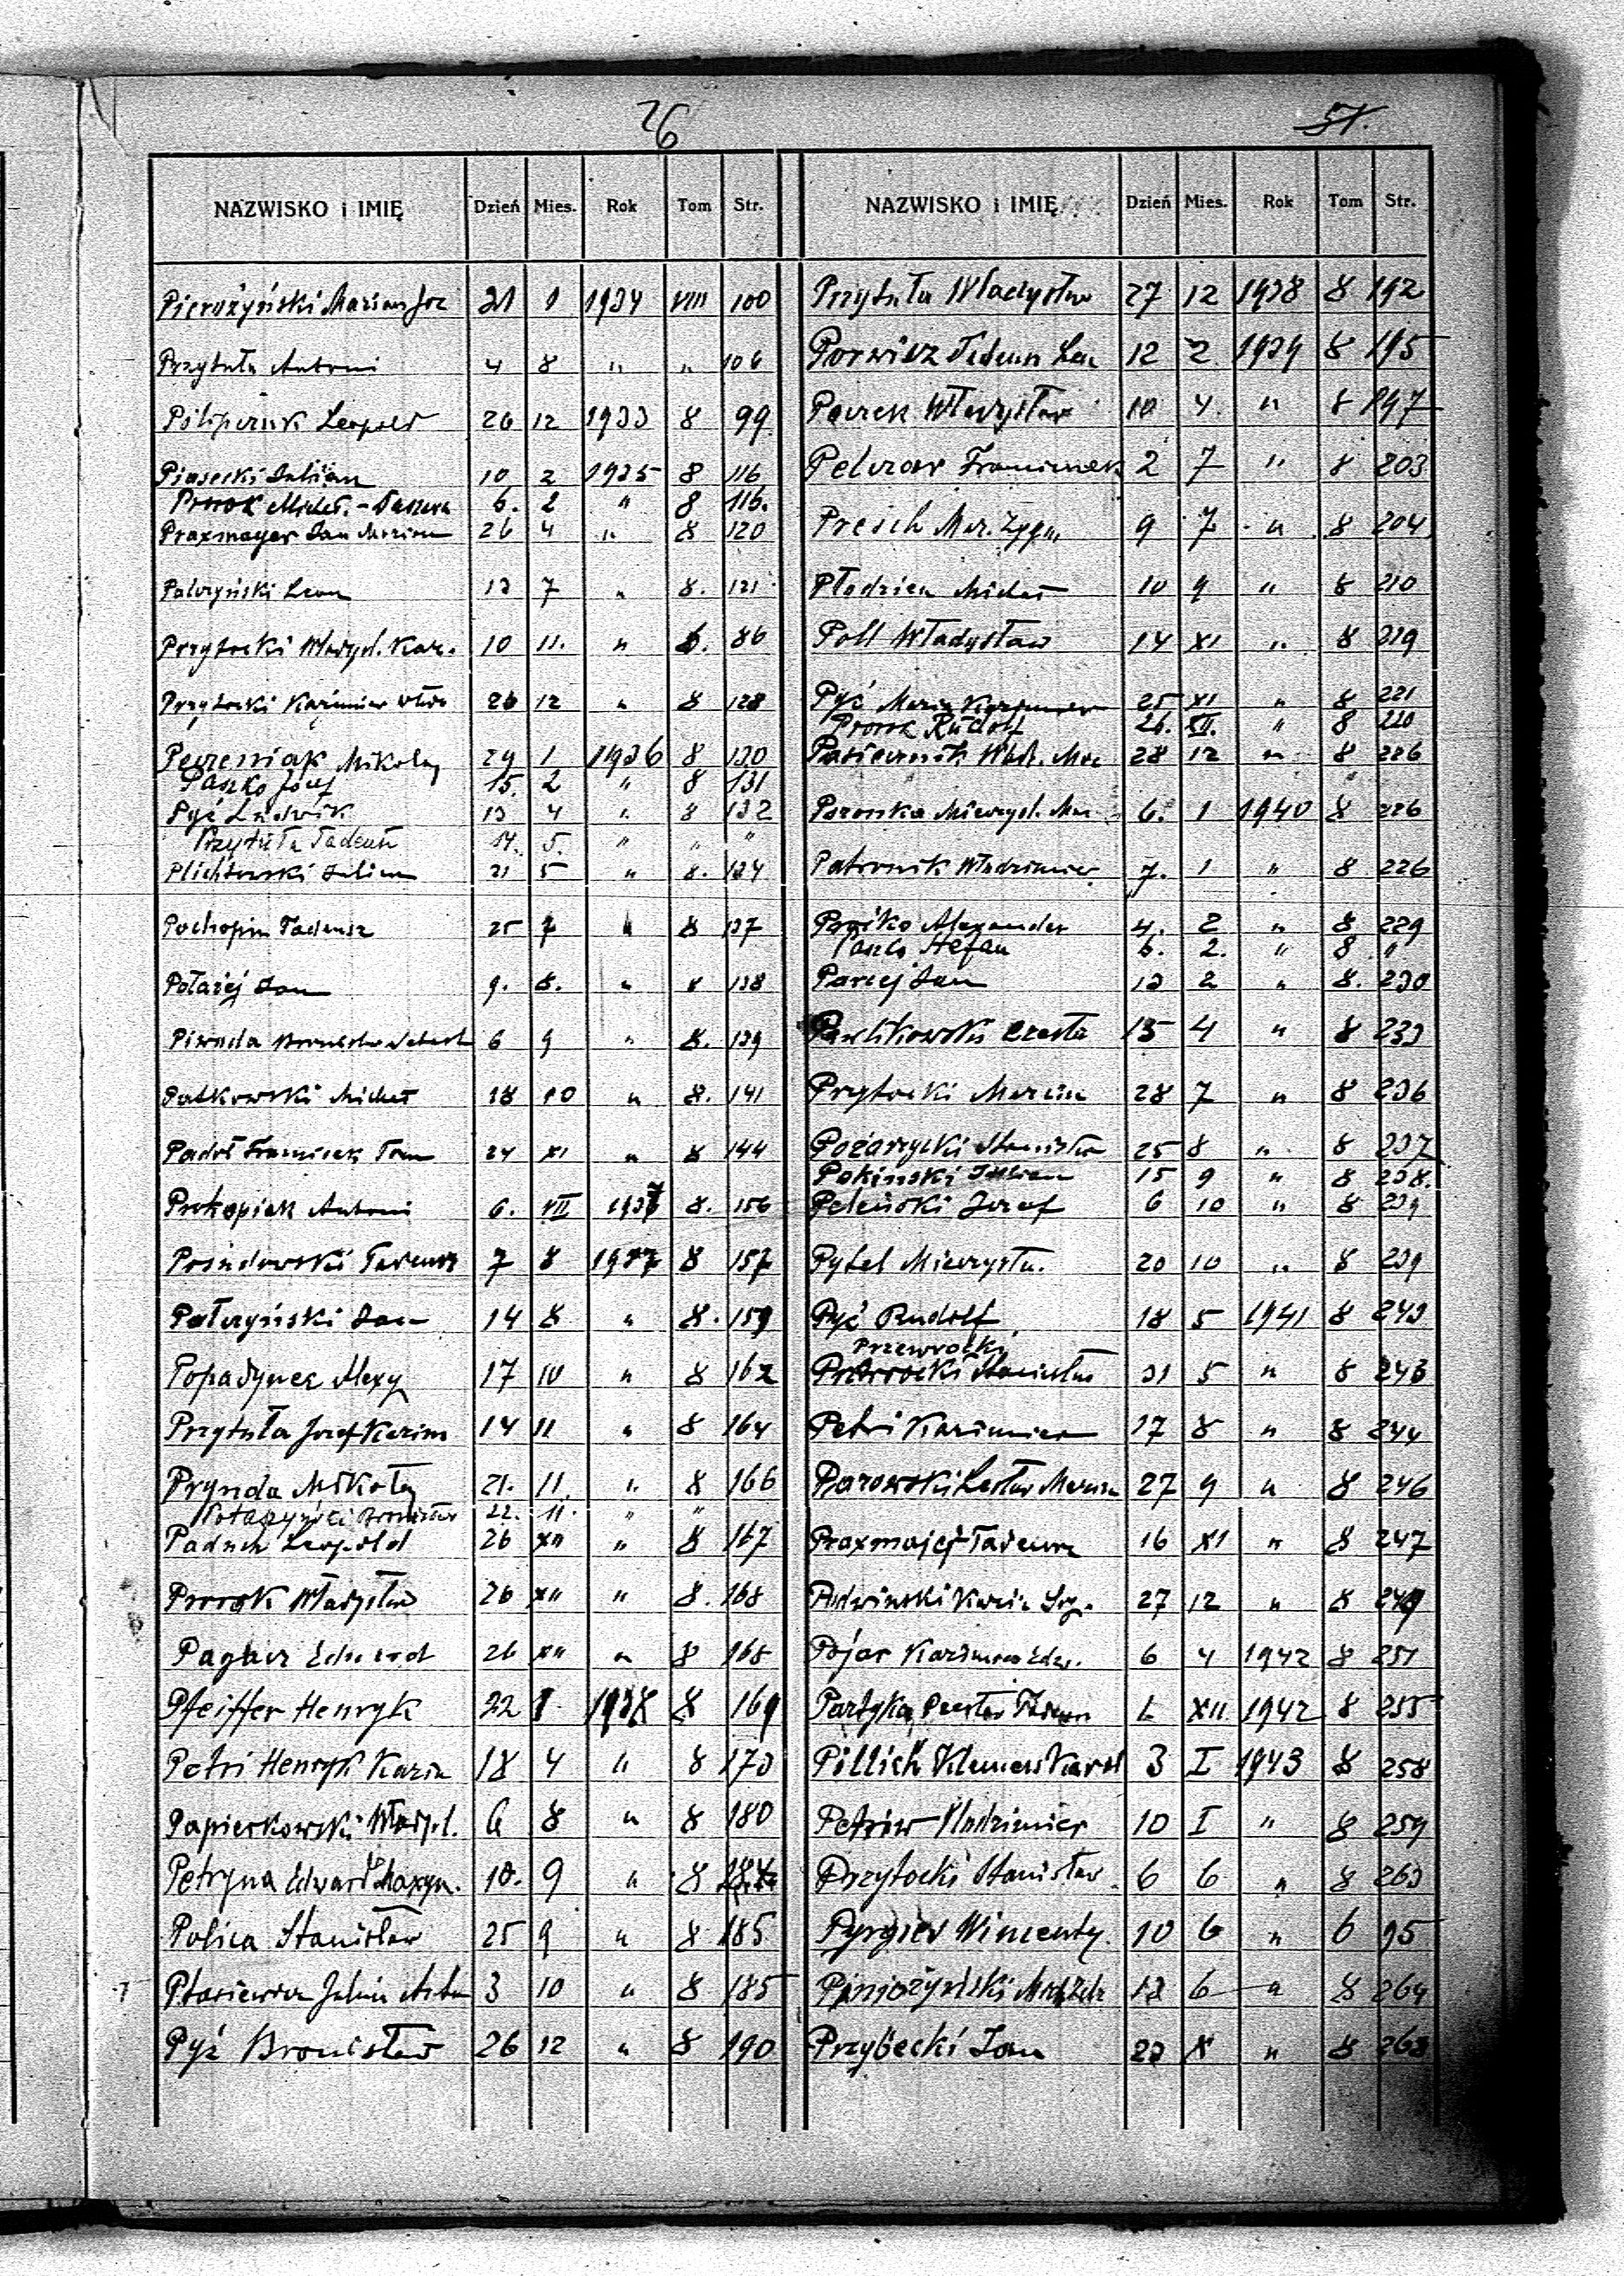 26
51.
NAZWISKO i IMIĘ Dzień Mies. Rok Tom Str.
Pierożyński Marian Joz 21 1 1934 VIII 100
Przytuła Antoni 4 8 " " 106
Pilipczuk Leopold 26 12 1933 8 99
Piasecki Julian 10 2 1935 8 116
Prorok Michał - Tadeusz 6. 2 " 8 116.
Praxmayer Jan Marian 26 4 " 8 120
Pałczyński Leon 13 7 " 8. 121
Przytocki Władysł. Kaz. 10 11. " 6. 86
Przytocki Kazimierz 26 12 " 8 128
Pewzeniak Mikołaj 29 1 1936 8 130
Paszko Józef 15. 2 " 8 131
Pyć Ludwik 13 4 " 8 132
Przytuła Tadeusz 14. 5. " " "
Plichtowski Julian 21 5 " 8. 134
Pochopin Tadeusz 25 7 " 8 137
Potażej Jan 9. 8. " 8 138
Piwoda Bronisław 6 9 " 8. 139
Patkowski Michał 18 10 " 8. 141
Padoł Franciszek Tom 24 XI " 8 144
Prokopiak Antoni 6. VII 1937 8. 156
Posudowski Tadeusz 7 8 1937 8 157
Pałczyński Jan 14 8 " 8. 159
Popadynec Alexy 17 10 " 8 162
Przytuła Józef Kazim 14 11 " 8 164
Prynda Mikołaj 21. 11. " 8 166
Potaczyński Bronisław 22. 11. " "
Paduch Leopold 26 XII " 8 167
Prorok Władysław 26 XII " 8. 168
Pagacz Edward 26 XII " 8 168
Pfeiffer Henryk 22 1 1938 8 169
Petri Henryk Kazim 18 4 " 8 173
Papierkowski Władysł. 6 8 " 8 180
Petryna Edward Maxym. 10. 9 " 8 184
Polica Stanisław 25 9 " 8 185
Ptasiewicz Julian 3 10 " 8 185
Pyź Bronisław 26 12 " 8 190
NAZWISKO i IMIĘ Dzień Mies. Rok Tom Str.
Przytuła Władysław 27 12 1938 8 192
Porwisz Tadeusz 12 2 1939 8 195
Pauzek Władysław 10 4. " 8 197
Pelczar Franciszek 2 7 " 8 203
Presch Mar. Zygm. 9 7 " 8 204
Płodzień Michał 10 9 " 8 210
Poll Władysław 14 XI " 8 219
Pyć Marian Kazimierz 25 XI " 8 221
Prorok Rudolf 26. XII. " 8 220
Pasiecznik Wład. Mar 28 12 " 8 226
Pszonka Mieczysł. Mar 6. 1 1940 8 226
Patronik Włodzimierz 7. 1 " 8 226
Prójko Alexander 4. 2 " 8 229
Paszko Stefan 6. 2. " 8 "
Parcej Jan 13 2 " 8. 230
Pawlikowski Czesław 15 4 " 8 233
Przytocki Marcin 28 7 " 8 236
Pożarycki Stanisław 25 8 " 8 237
Pokiński Julian 15 9 " 8 238.
Peleński Józef 6 10 " 8 239
Pytel Mieczysław. 20 10 " 8 239
Pyć Rudolf 18 5 1941 8 243
Przewrocki
Przewrocki Stanisław 31 5 " 8 243
Petri Kazimierz 17 8 " 8 244
Parowski Lesław Marian 27 9 " 8 246
Praxmajer Tadeusz 16 XI " 8 247
Podwiński Kazim. 27 12 " 8 249
Pojar Kazimierz Edw. 6 4 1942 8 251
Partyka Czesław Tadeusz XII 1942 8 255
Pillich Klemens Karol 3 I 1943 8 258
Petriw Włodzimierz 10 I " 8 259
Przytocki Stanisław 6 6 " 8 263
Pyrgies Wincenty. 10 6 " 6 95
Pierożyński 13 6 " 8 264
Przybecki Jan 23 X " 8 268